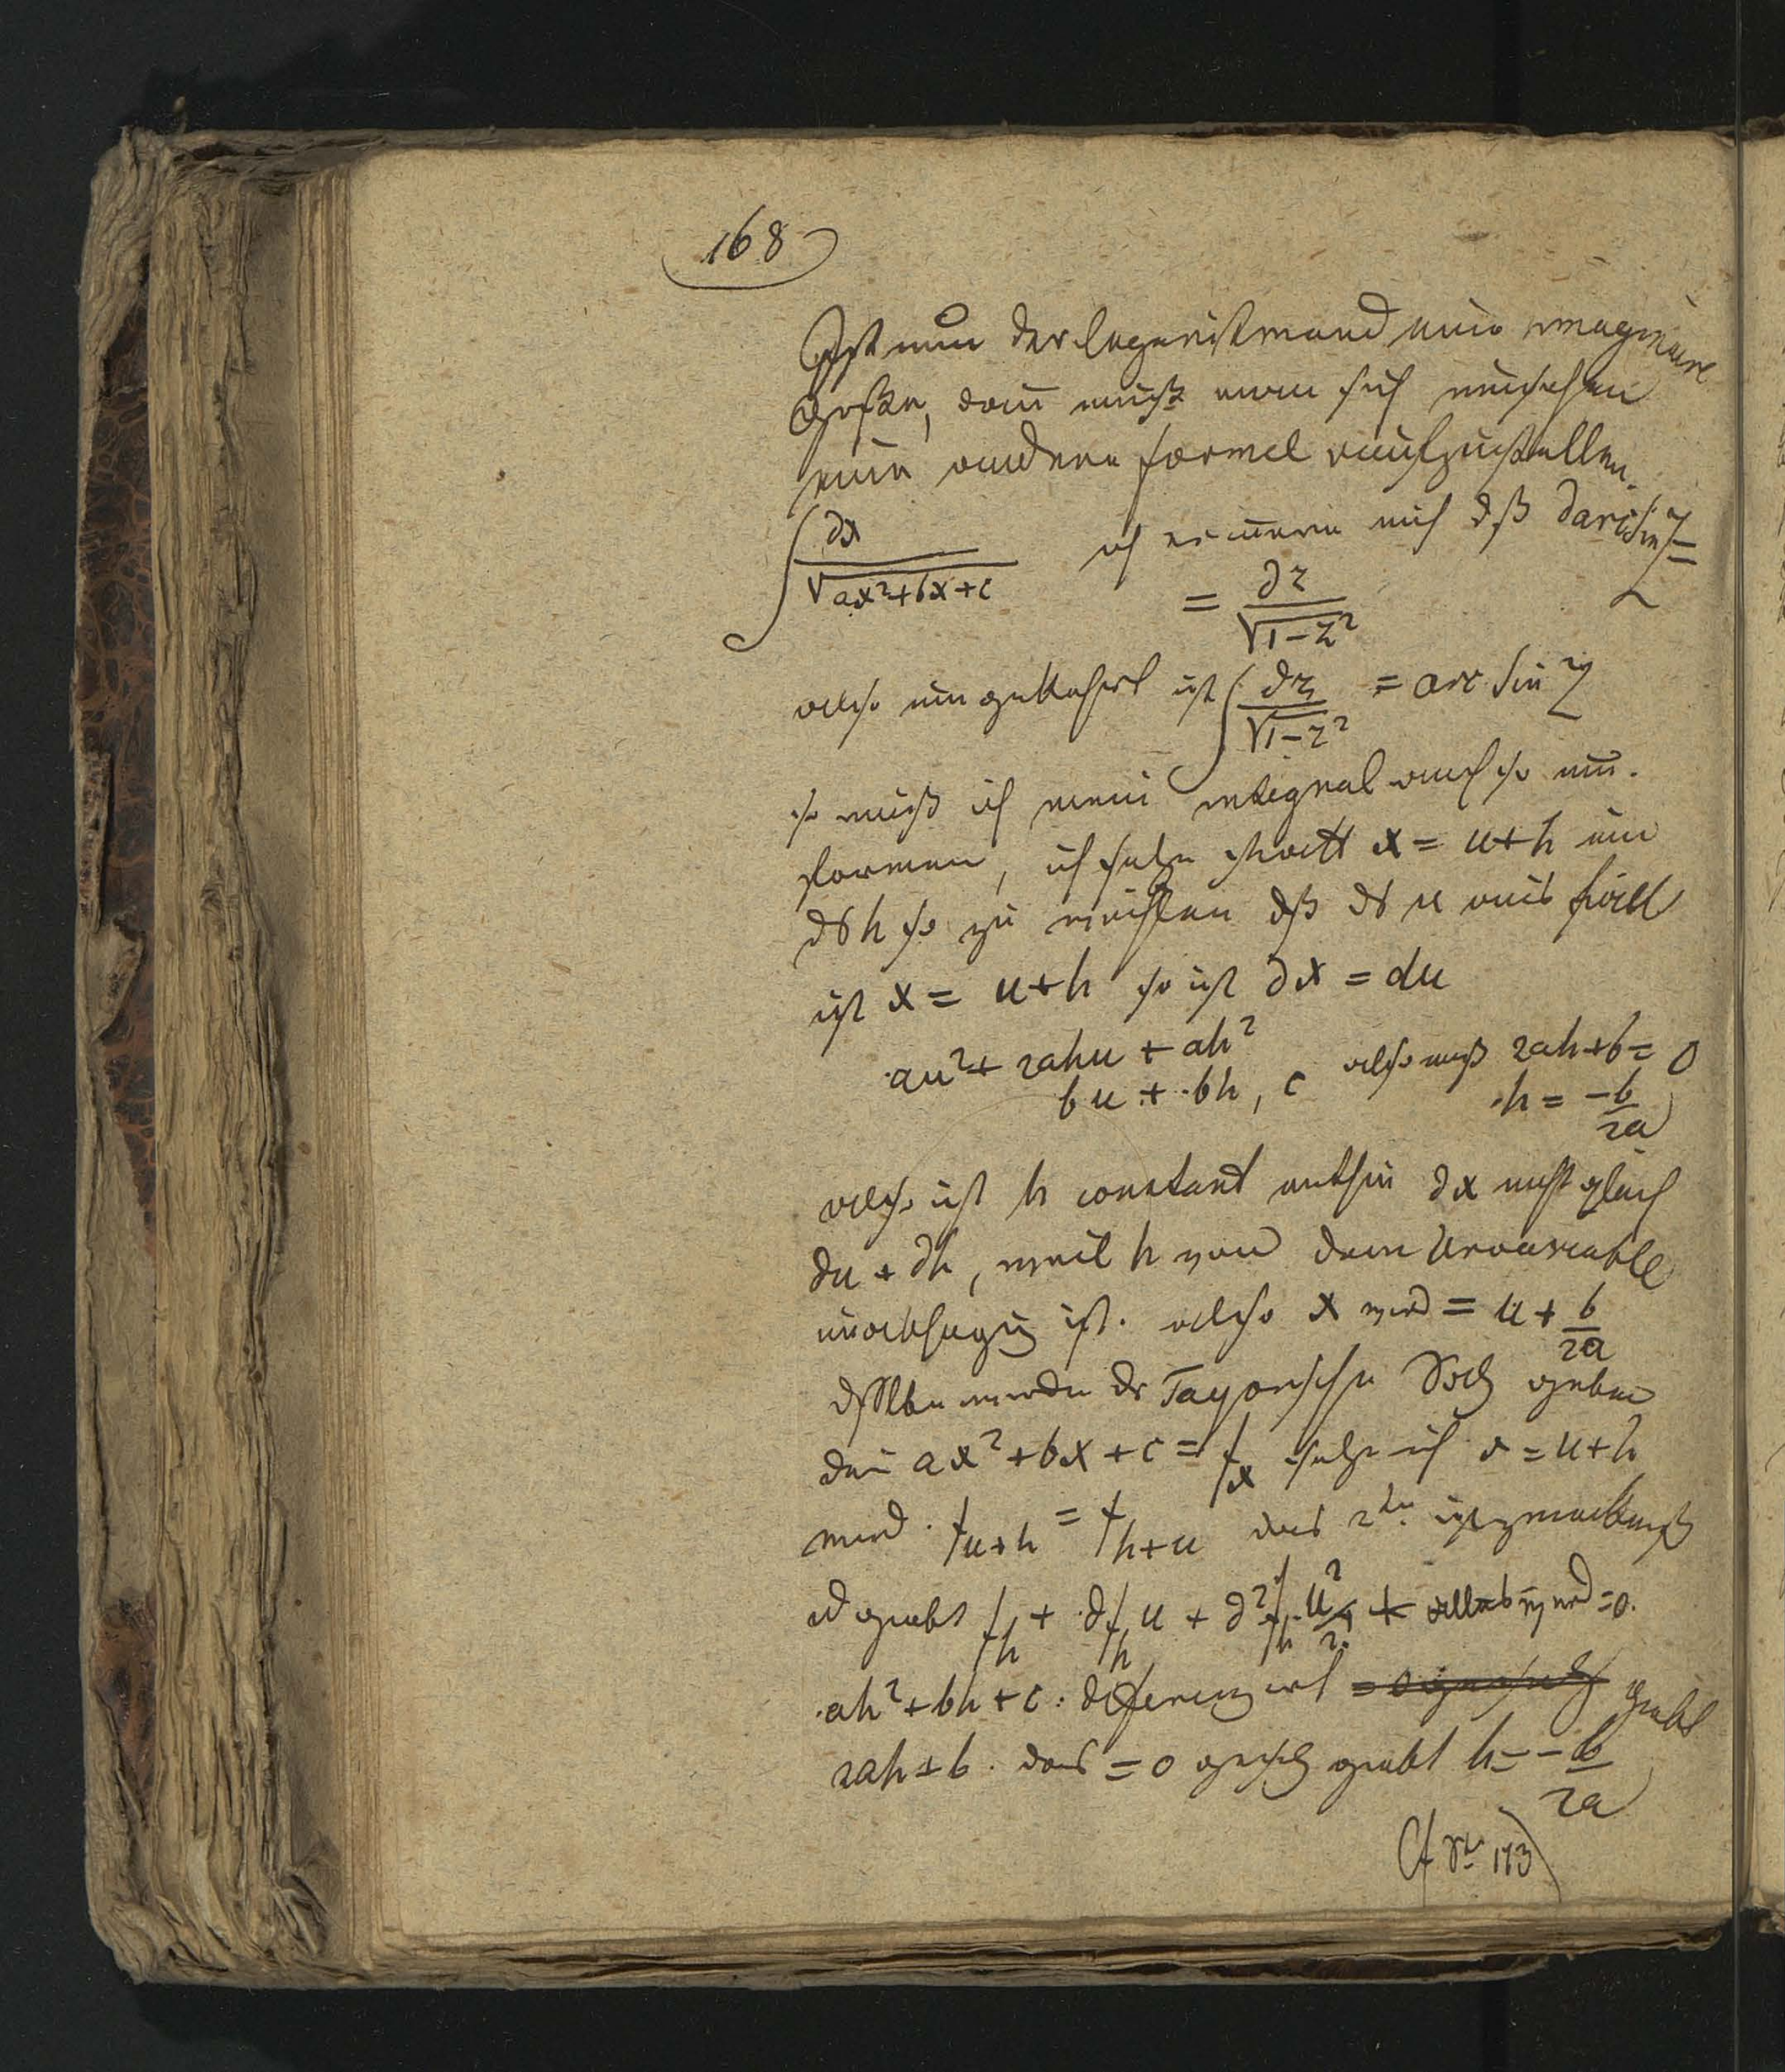 168
Ist nun der logarithmand eine imaginaire
Große, dann muß man sich umsehen
eine andere formel aufzustellen.
∫ ∂x / √ax²+bx+c ich erinnere mich dß d arc Sin Z =
= ∂z / √1−z²
also umgekehrt ist ∫ ∂z / √1−z² = arc Sin Z
so muß ich mein integral auch so um.
formen, ich setze statt x = u+h um
ds h so zu wählen dß ds u aus fällt
ist x = u+h so ist ∂x = du
au² + 2ahu + ah² also muß 2ah+b = 0
bu + bh, c h = −b/2a
also ist h constant mithin ∂x nicht gleich
du + ∂h, weil h von dem Urvariable
unabhengig ist. also x wird = u + b/2a
dsselbe würde der Tayorsche Satz geben
den ax²+bx+c = fx setze ich x = u+h
wird f u+h = f h+u das 2te ist
es giebt fh + ∂fh u + ∂²fh u²/2 + alles wird = 0.
ah²+bh+c : differenzirt giebt
2ah+b. das = 0 gesetzt giebt h = −b/2a
Cf 173